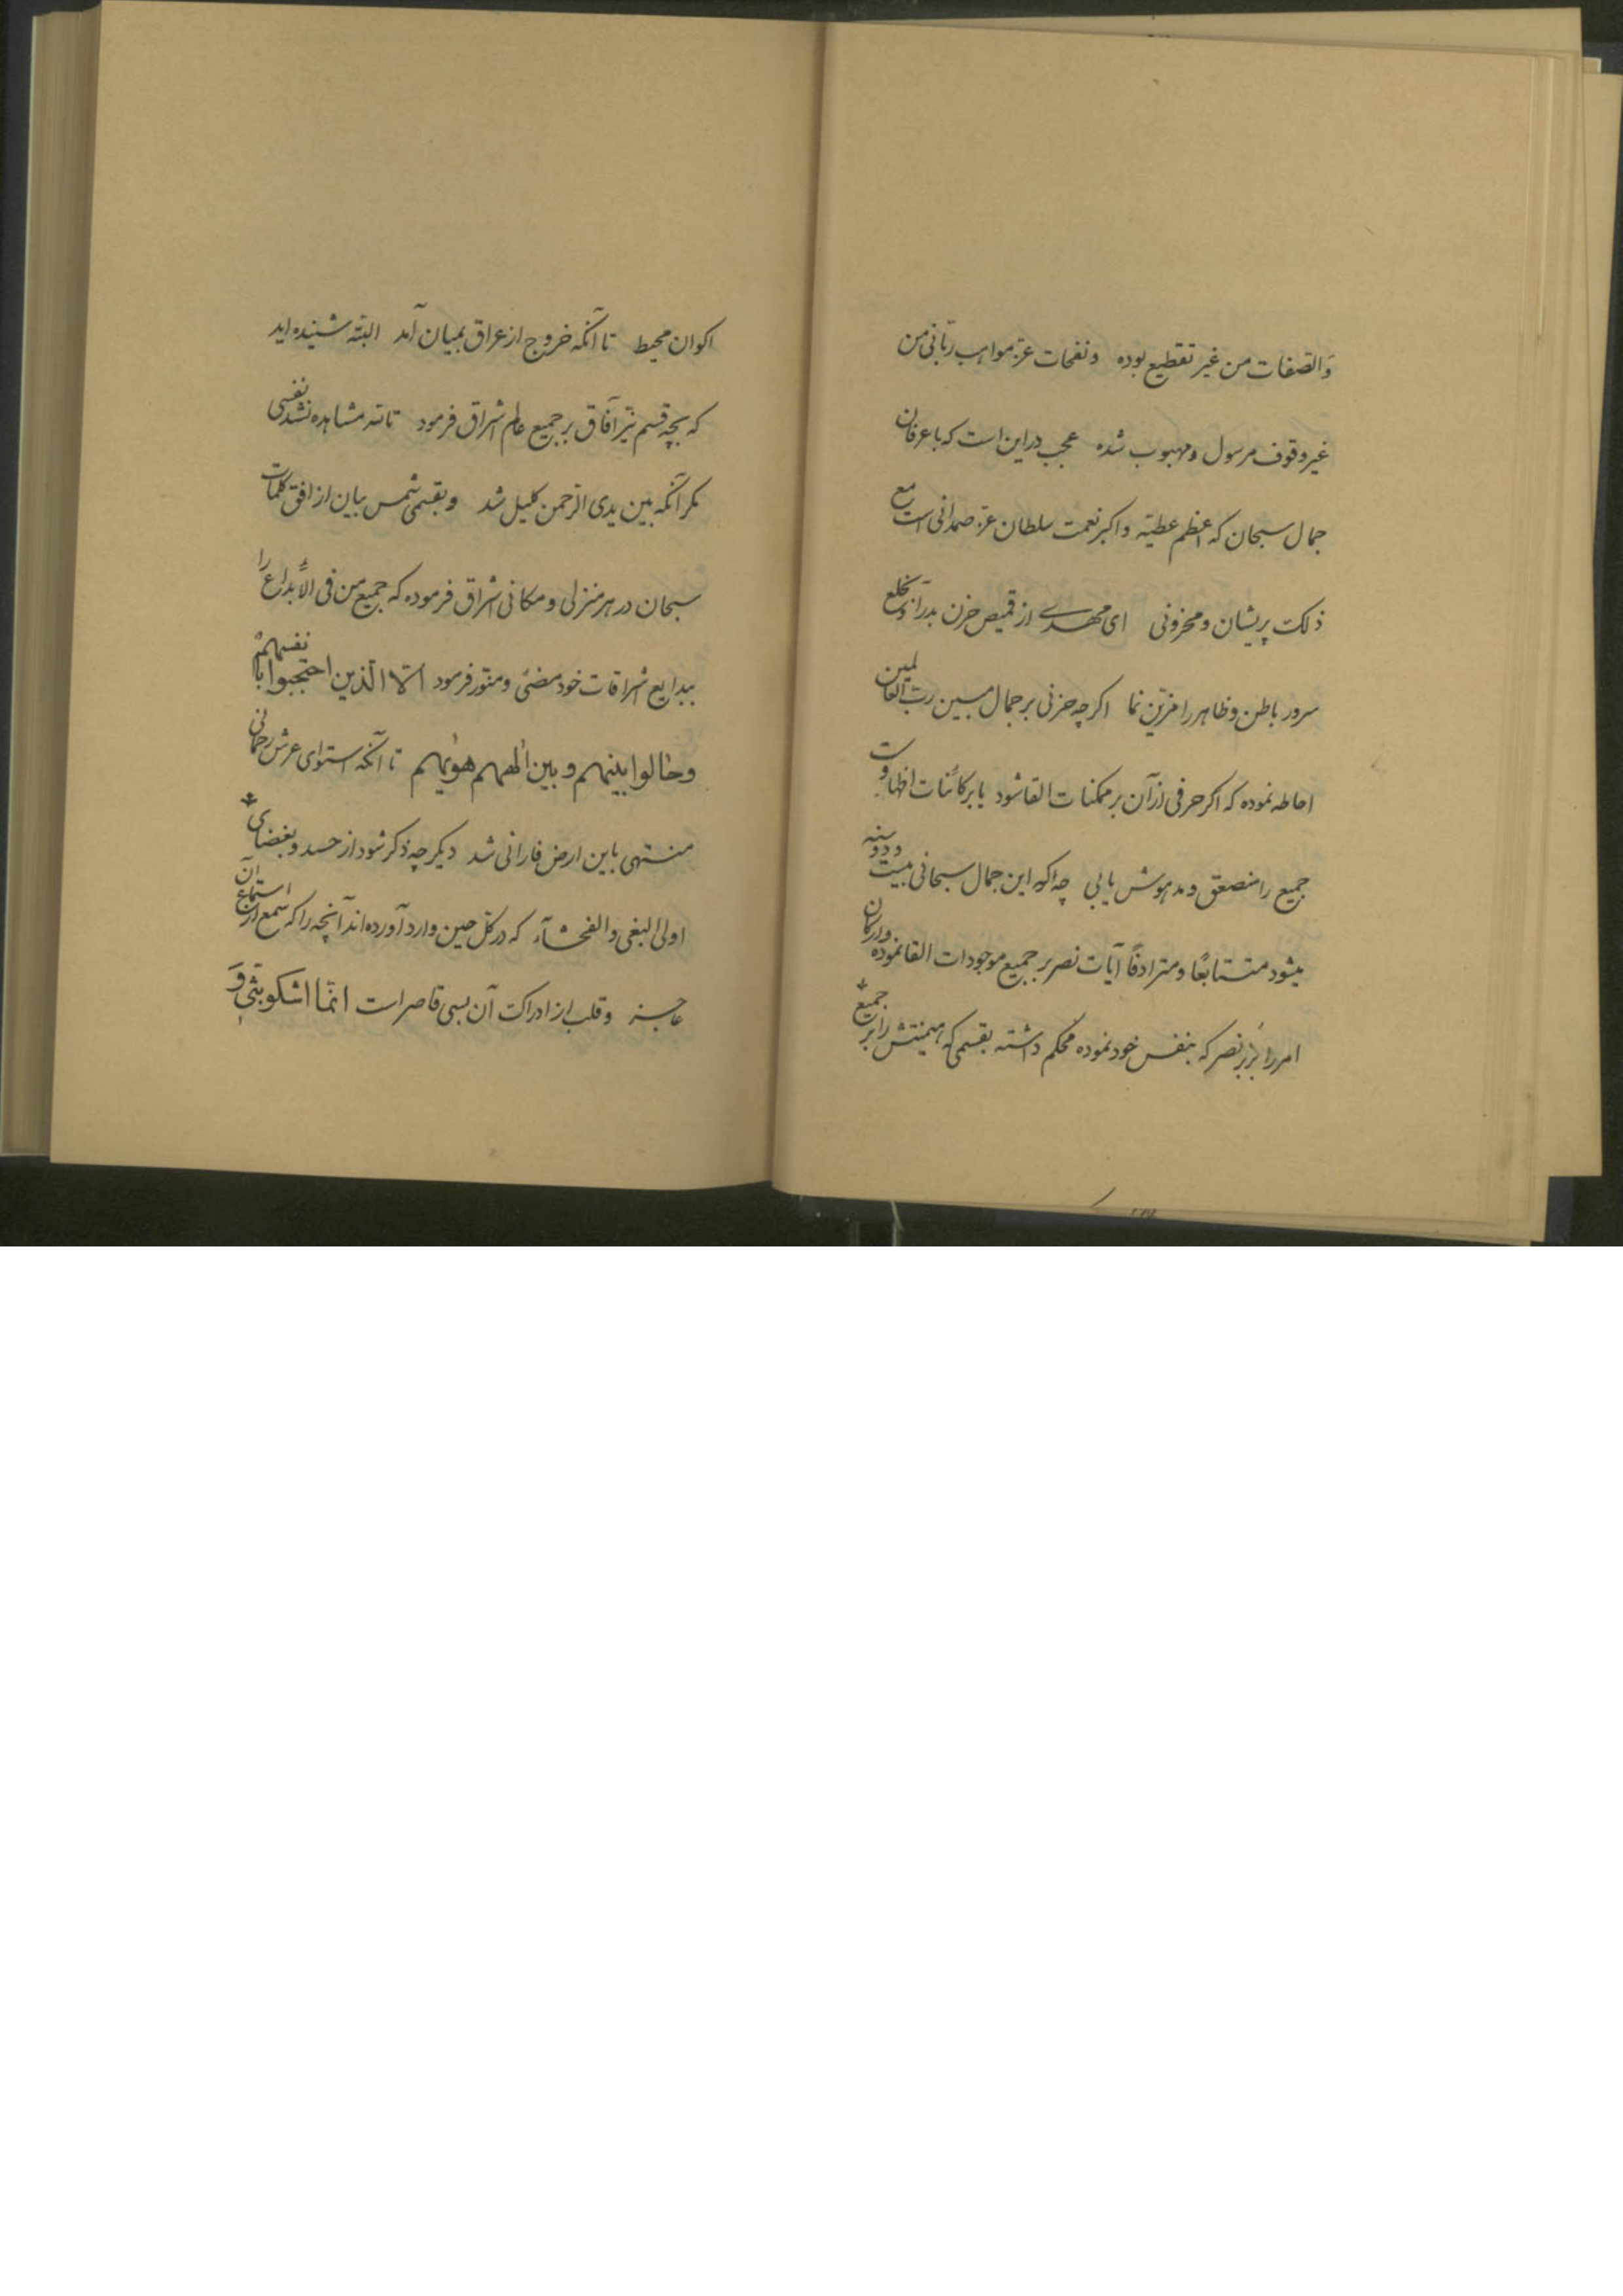 وَالصّفات من غیر تقطیع بوده ونفحات عزّ مواهب ربّانی من
غیر وقوف مرسول ومهبوب شده عجب در این است که با عرفان
جمال سبحان که اعظم عطیّه واکبر نعمت سلطان عزّ صمدانی است مع
ذلک پریشان ومحزونی ای مهدی از قمیص حزن بدرآ وبخلع
سرور باطن وظاهر را مزیّن نما اکرچه حزنی بر جمال مبین ربّ العالمین
احاطه نموده که اکر حرفی از آن بر ممکنات القا شود یا بر کائنات اظهار
جمیع را منصعق ومدهوش یابی چه که این جمال سبحانی
میشود متتابعًا ومترادفًا آیات نصر بر جمیع موجودات القا نموده وارکان
امر را بزبر نصر که بنفس خود نموده محکم داشته بقسمی که هیمنتش را بر جمیع
اکوان محیط تا آنکه خروج از عراق بمیان آمد البتّه شنیده اید
که بچه قسم نیّر آفاق بر جمیع عالم اشراق فرمود تالله مشاهده نشد نفسی
مکر آنکه بین یدی الرّحمن کلیل شد وبقسمی شمس بیان از افق کلمات
سبحان در هر منزلی ومکانی اشراق فرموده که جمیع من فی الأبداع را
ببدایع اشراقات خود مضئی ومنوّر فرمود الّا الّذین احتجبوا بانفسهم
وحالوا بینهم وبین الٰههم هویٰهم تا آنکه استوای عرش رحمانی
منتهی باین ارض فارانی شد دیکر چه ذکر شود از حسد وبغضای
اولی البغی والفحشآء که در کلّ حین وارد آورده اند آنچه را که سمع از استماع آن
عاجز وقلب از ادراک آن بسی قاصر است انّما اشکو بثّی وَ